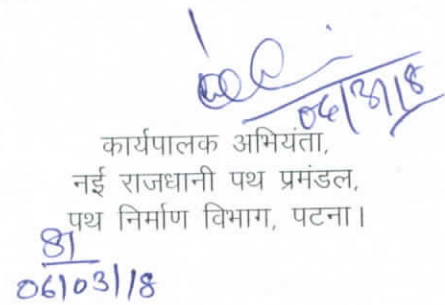 06/3/18
कार्यपालक अभियंता,
नई राजधानी पथ प्रमंडल,
पथ निर्माण विभाग, पटना।
06/03/18